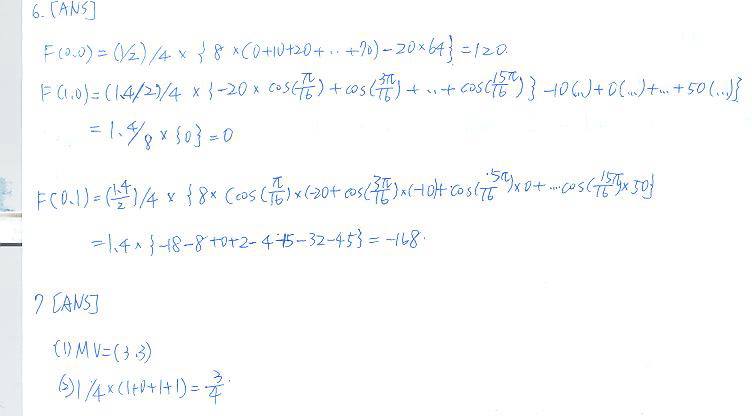 6. [ANS]
F(0.0) = (1/2)/4 × { 8 × (0+10+20+..+70) - 20×64} = 120.
F(1.0) = (1.4/2)/4 × {-20 × cos(π/16) + cos(3π/16) + .. + cos(15π/16) } -10(..) + 0(...) +... + 50(...)}
= 1.4/8 × {0} = 0
F(0.1) = (1.4/2)/4 × { 8× (cos(π/16)×(-20+cos(3π/16)×(-10)+cos(5π/16)×0+...cos(15π/16)×50}
= 1.4 × {-18-8+0+2-4-15-32-45} = -168.
7 [ANS]
(1) MV=(3.3)
(2) 1/4×(1+0+1+1) = 3/4.